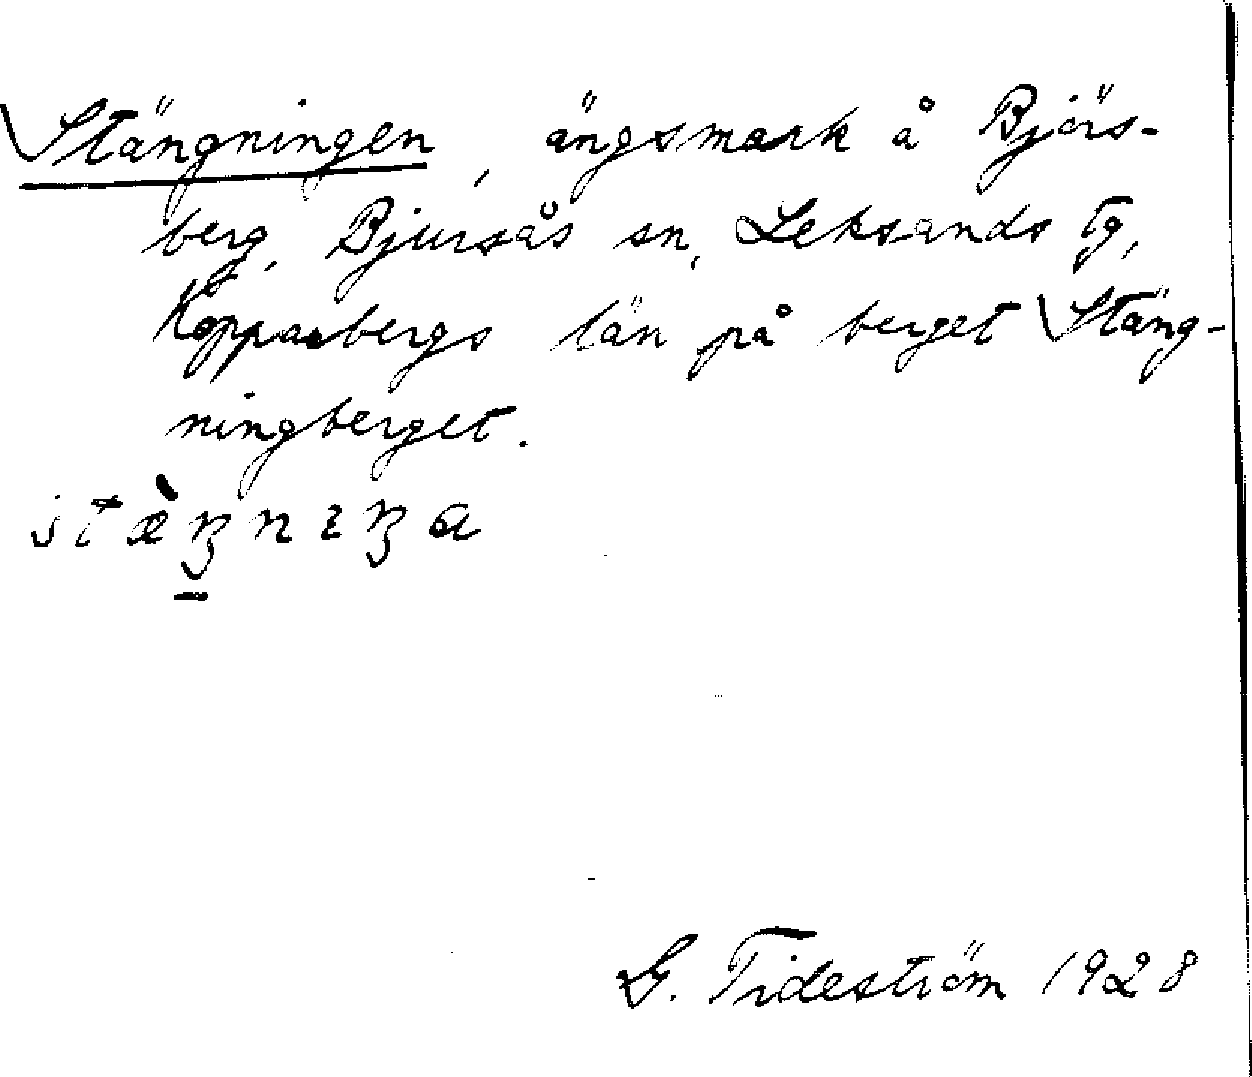 Stängningen, ängsmark å Björs-
berg, Bjursås sn, Leksands tg,
Kopparbergs län på berget Stäng-
ningberget.
stæ̀ŋnɪŋa
G. Tideström 1928